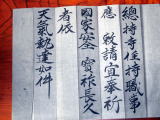 總持寺住持職事
應 敕請宜奉祈
國家安全 寳祚長久
者依
天氣執達如件